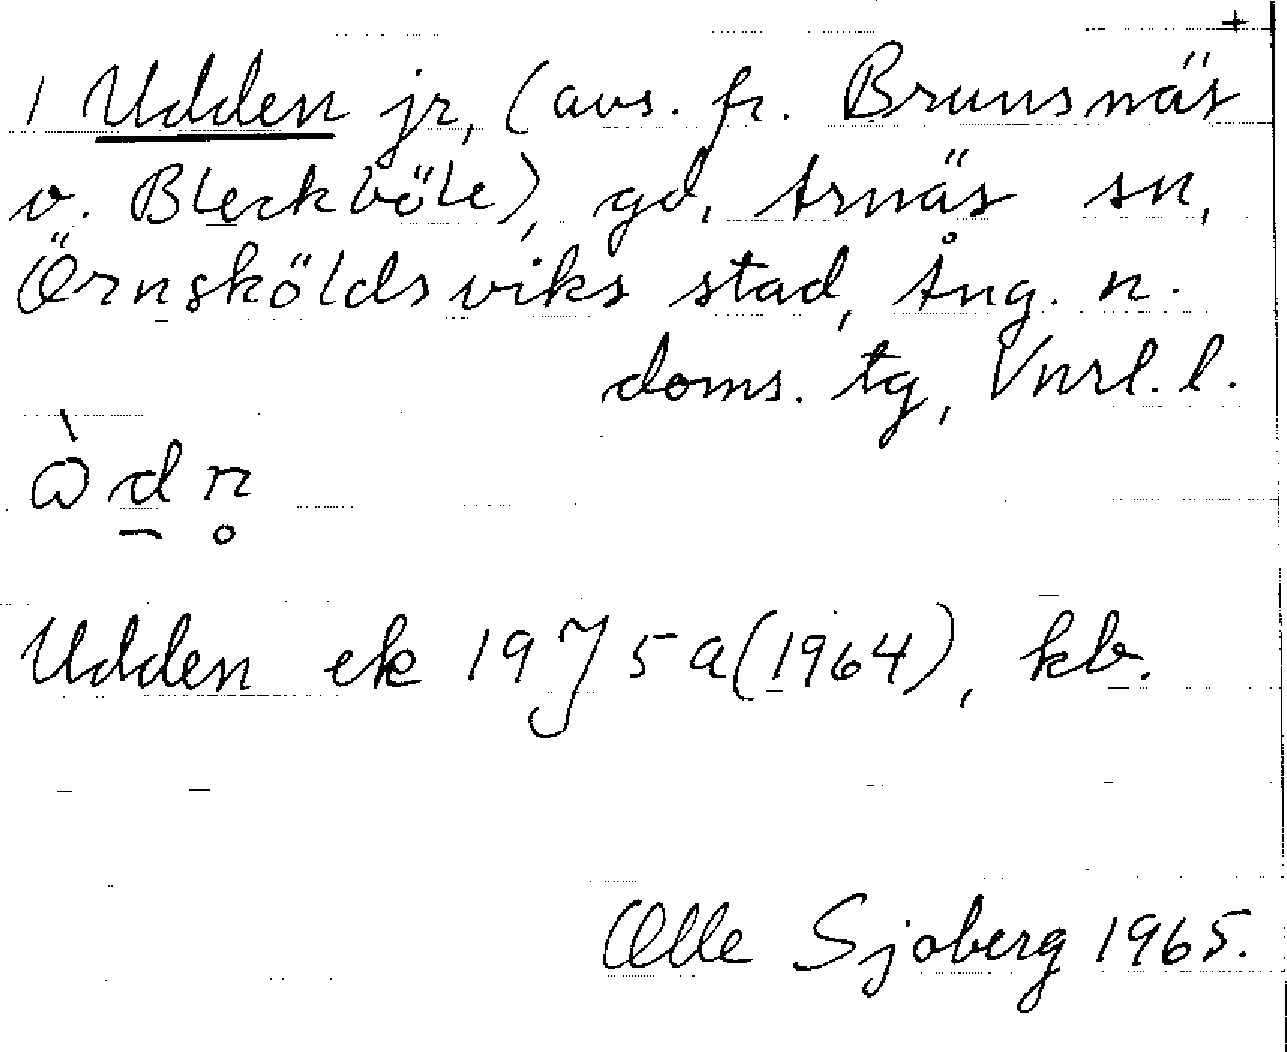 +
1 Udden jr, (avs. fr. Brunsnäs
o. Bleckböle), gd, Arnäs sn,
Örnsköldsviks stad, Ång. n.
doms. tg, Vnrl. l.
Udden ek 19 J 5 a (1964), kb.
Olle Sjöberg 1965.